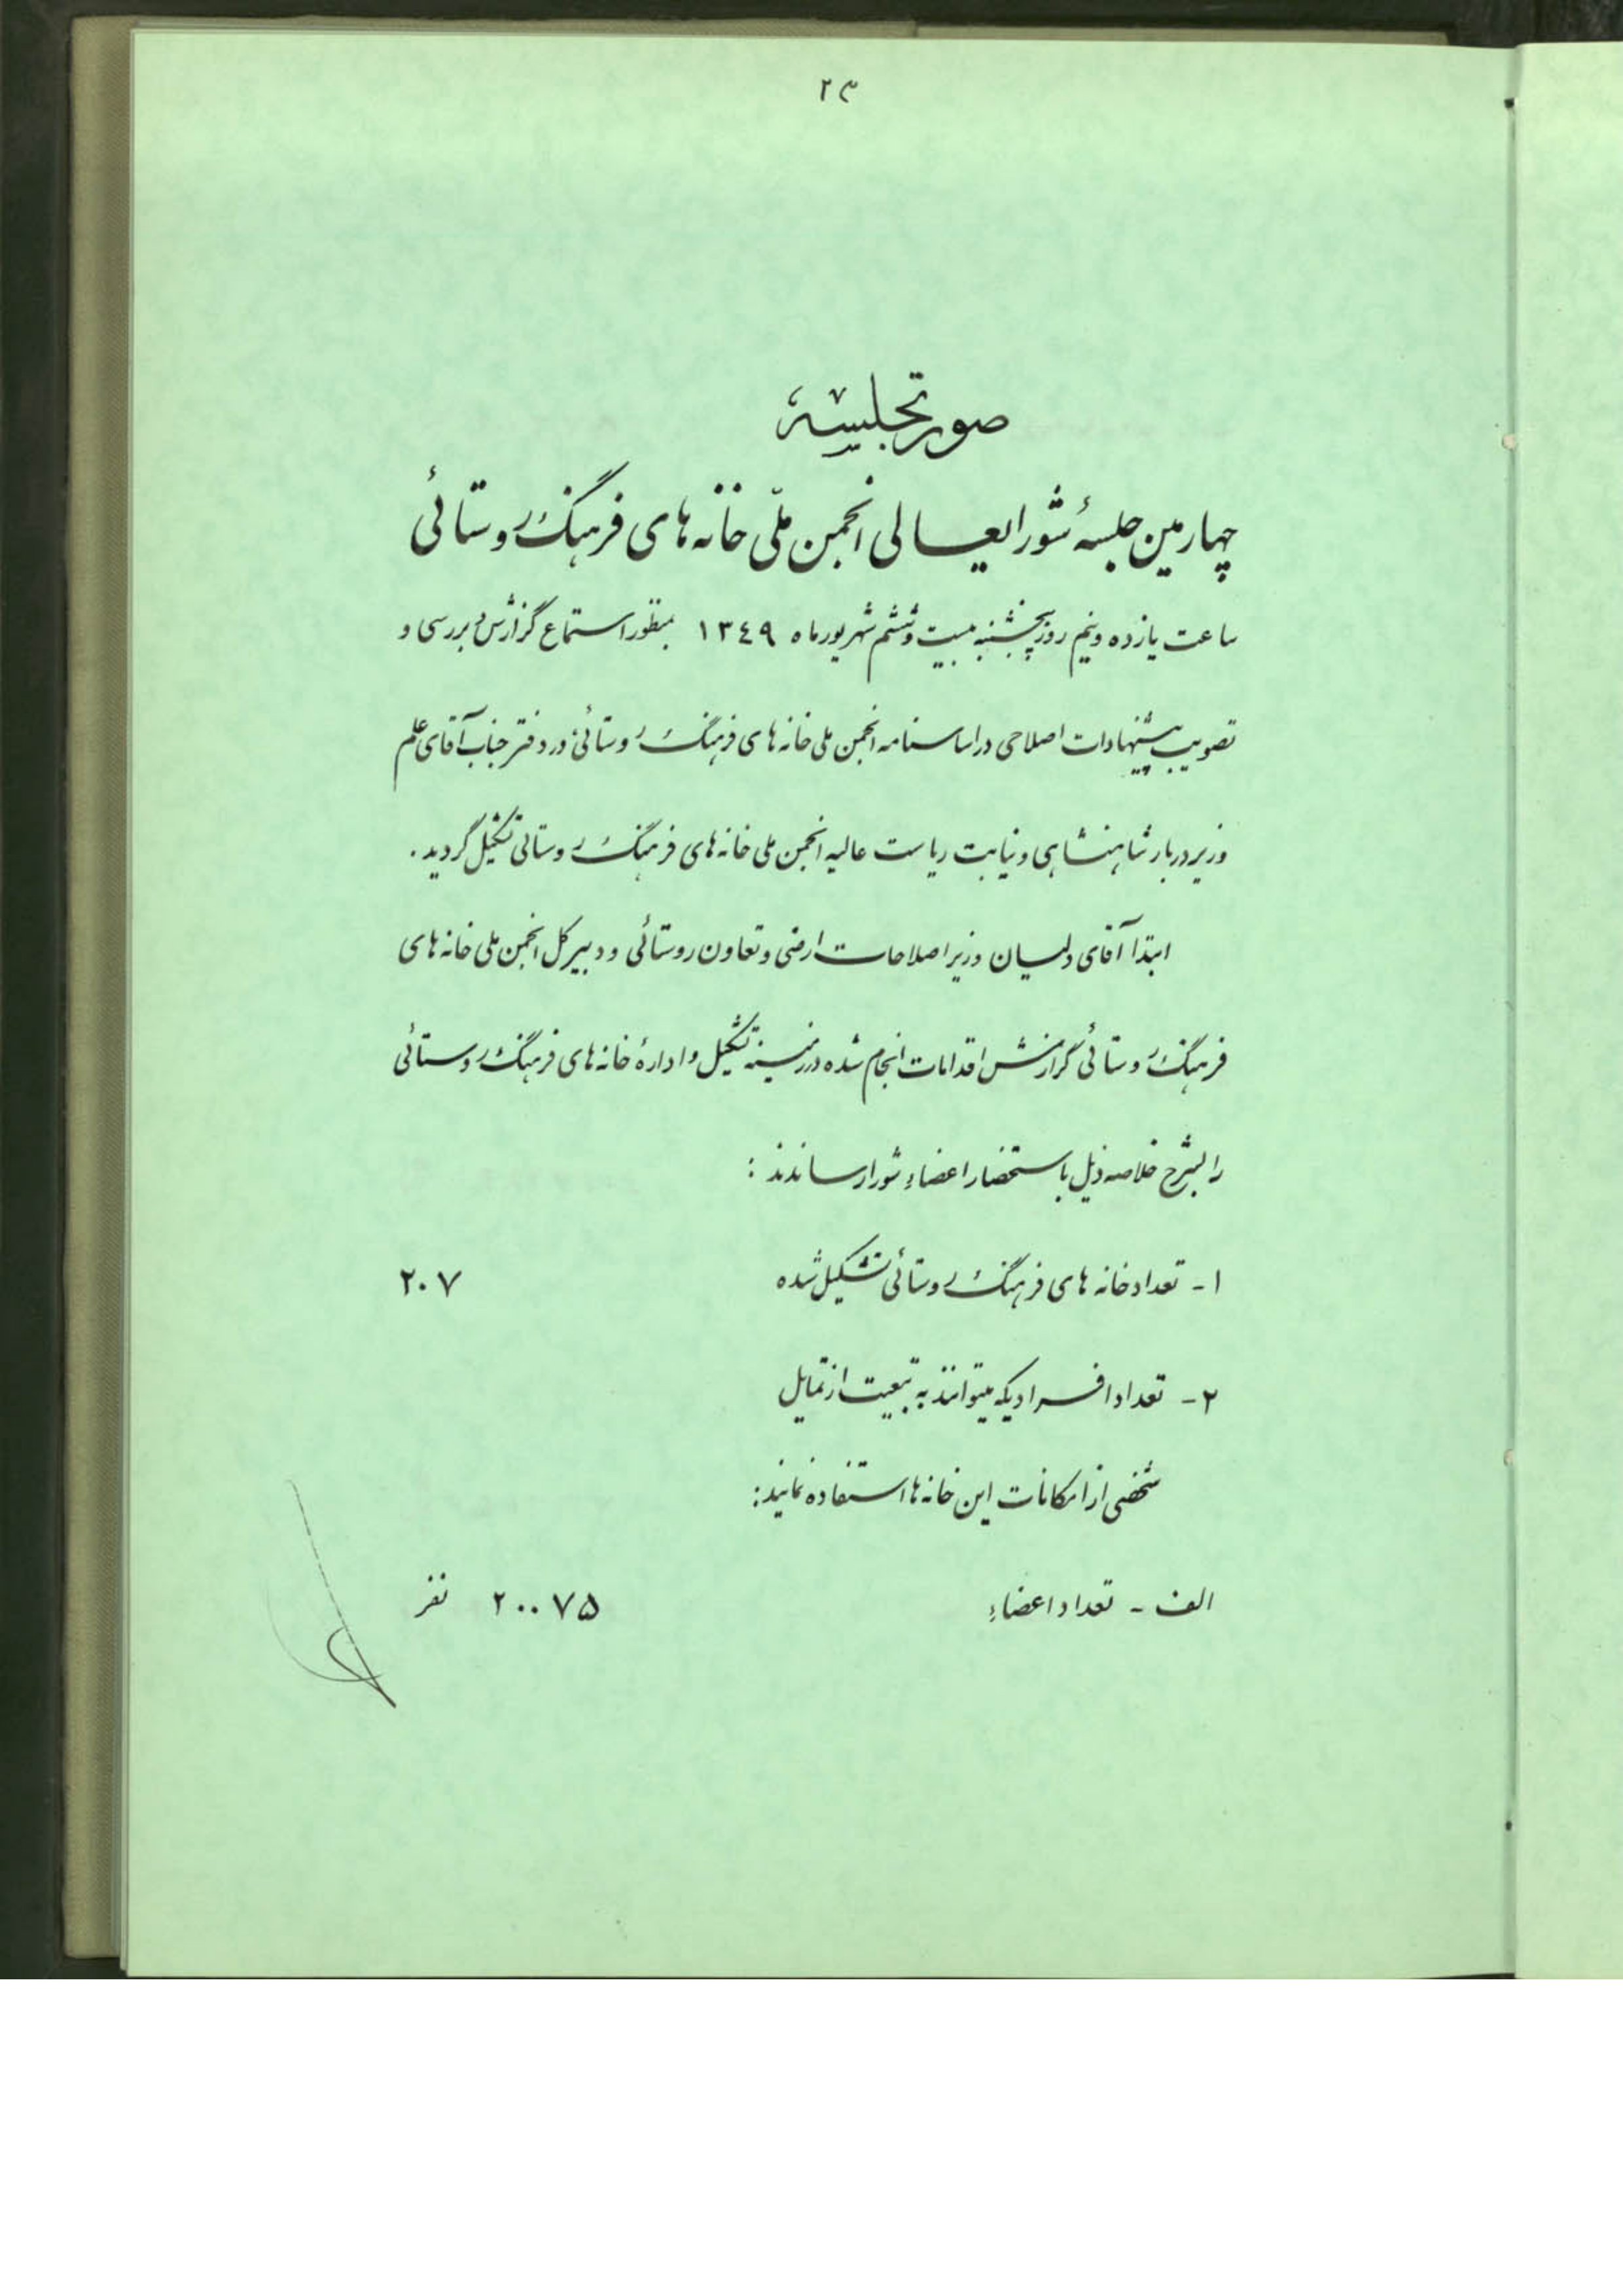 ۲۳
صورتجلسه
چهارمین جلسهٔ شورایعالی انجمن ملّی خانه های فرهنگ روستائی
ساعت یازده ونیم روز پنجشنبه بیست وششم شهریورماه ۱۳۴۹ بمنظور استماع گزارش و بررسی و
تصویب پیشنهادات اصلاحی در اساسنامه انجمن ملی خانه های فرهنگ روستائی در دفتر جناب آقای علم
وزیر دربار شاهنشاهی و نیابت ریاست عالیه انجمن ملی خانه های فرهنگ روستائی تشکیل گردید .
ابتدا آقای ولیان وزیر اصلاحات ارضی و تعاون روستائی و دبیر کل انجمن ملی خانه های
فرهنگ روستائی گزارش اقدامات انجام شده در زمینه تشکیل و ادارهٔ خانه های فرهنگ روستائی
را بشرح خلاصه ذیل باستحضار اعضاء شورا رساندند :
۱ - تعداد خانه های فرهنگ روستائی تشکیل شده ۲۰۷
۲ - تعداد افرادیکه میتوانند به تبعیت از تمایل
شخصی از امکانات این خانه ها استفاده نمایند :
الف - تعداد اعضاء ۲۰۰۷۵ نفر